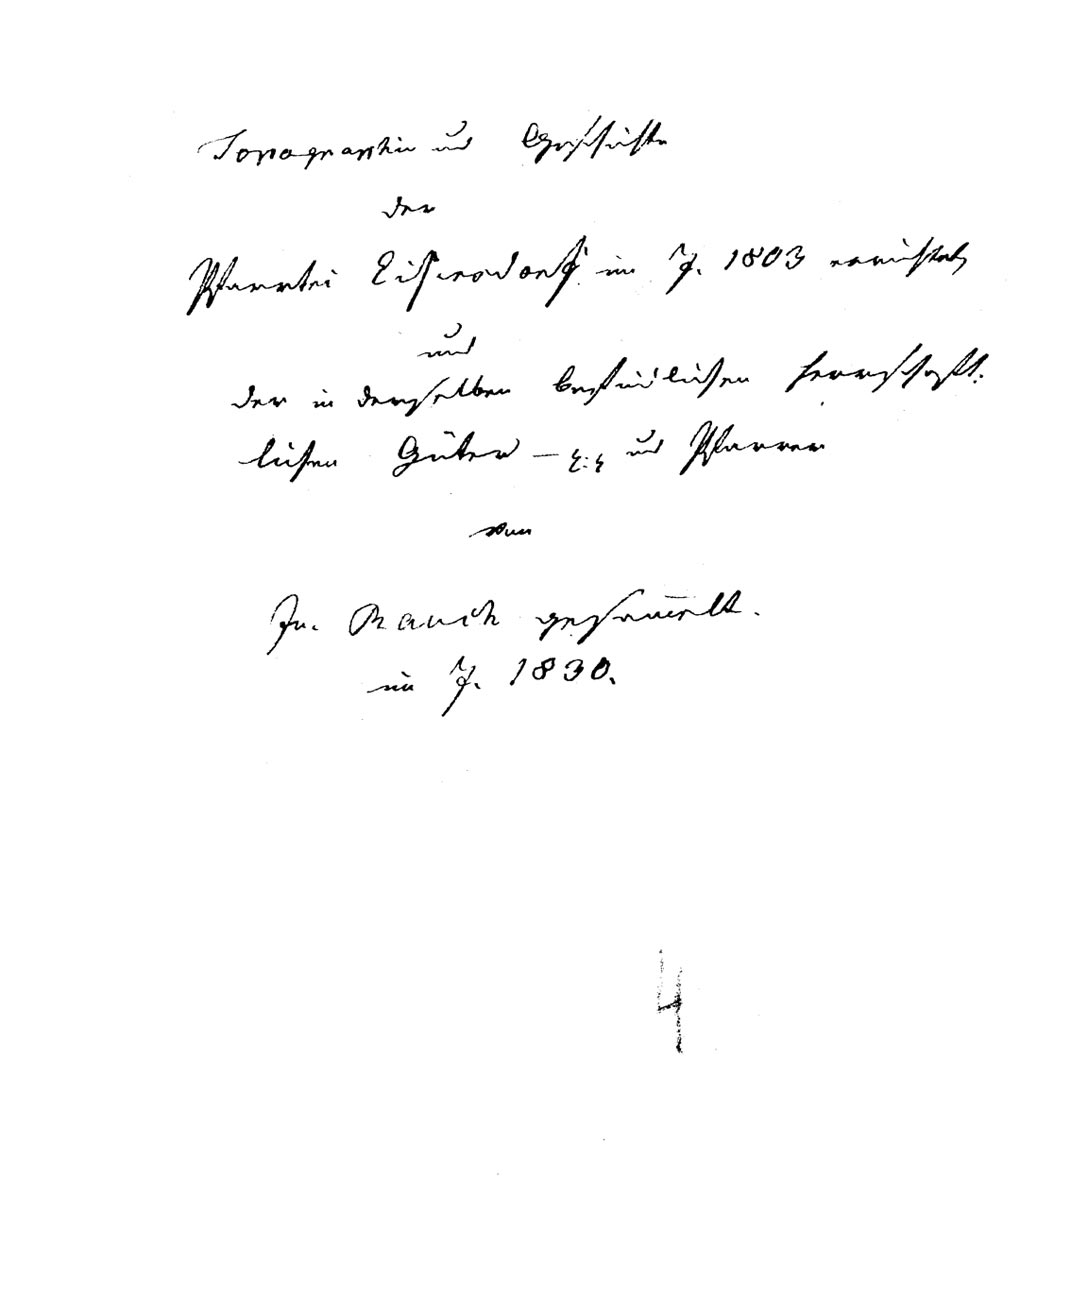 Topographie und Geschichte
der
Pfarrei im J. 1803 errichtet,
und
der in derselben befindlichen herrschaft-
lichen Güter – und Pfarrer
von
Jn. Rauch gesam̅elt.
im J. 1830.
4